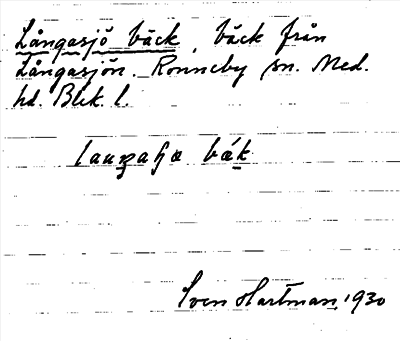 Långasjö bäck, bäck från
Långasjön. Ronneby sn. Med.
hd. Blek. l.
bäk
Sven Hartman, 1930